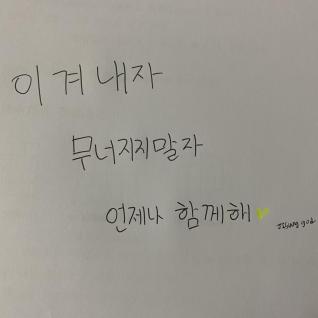 이겨내자
무너지지말자
언제나 함께해